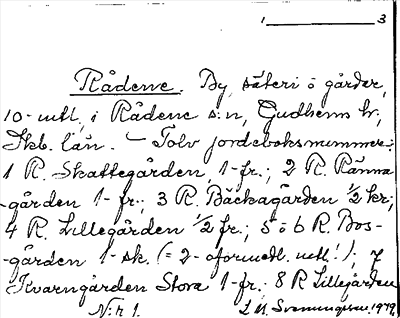 1 3
Rådene. By, säteri o gårdar,
10-mtl, i Rådene s:n, Gudhems hr,
Skb. län. – Tolv jordeboksnummer:
1 R. Skattegården, 1-fr.; 2 R. Ränna-
gården 1-fr.; 3 R. Bäckagården ½ kr;
4 R. Lillegården ½ fr.; 5 o 6 R. Bos-
gården 1-sk. (= 2-oformedl. mtl!); 7
Kvarngården Stora 1-fr.; 8 R Lillegården
N:r 1. L M. Svenungsson 1979